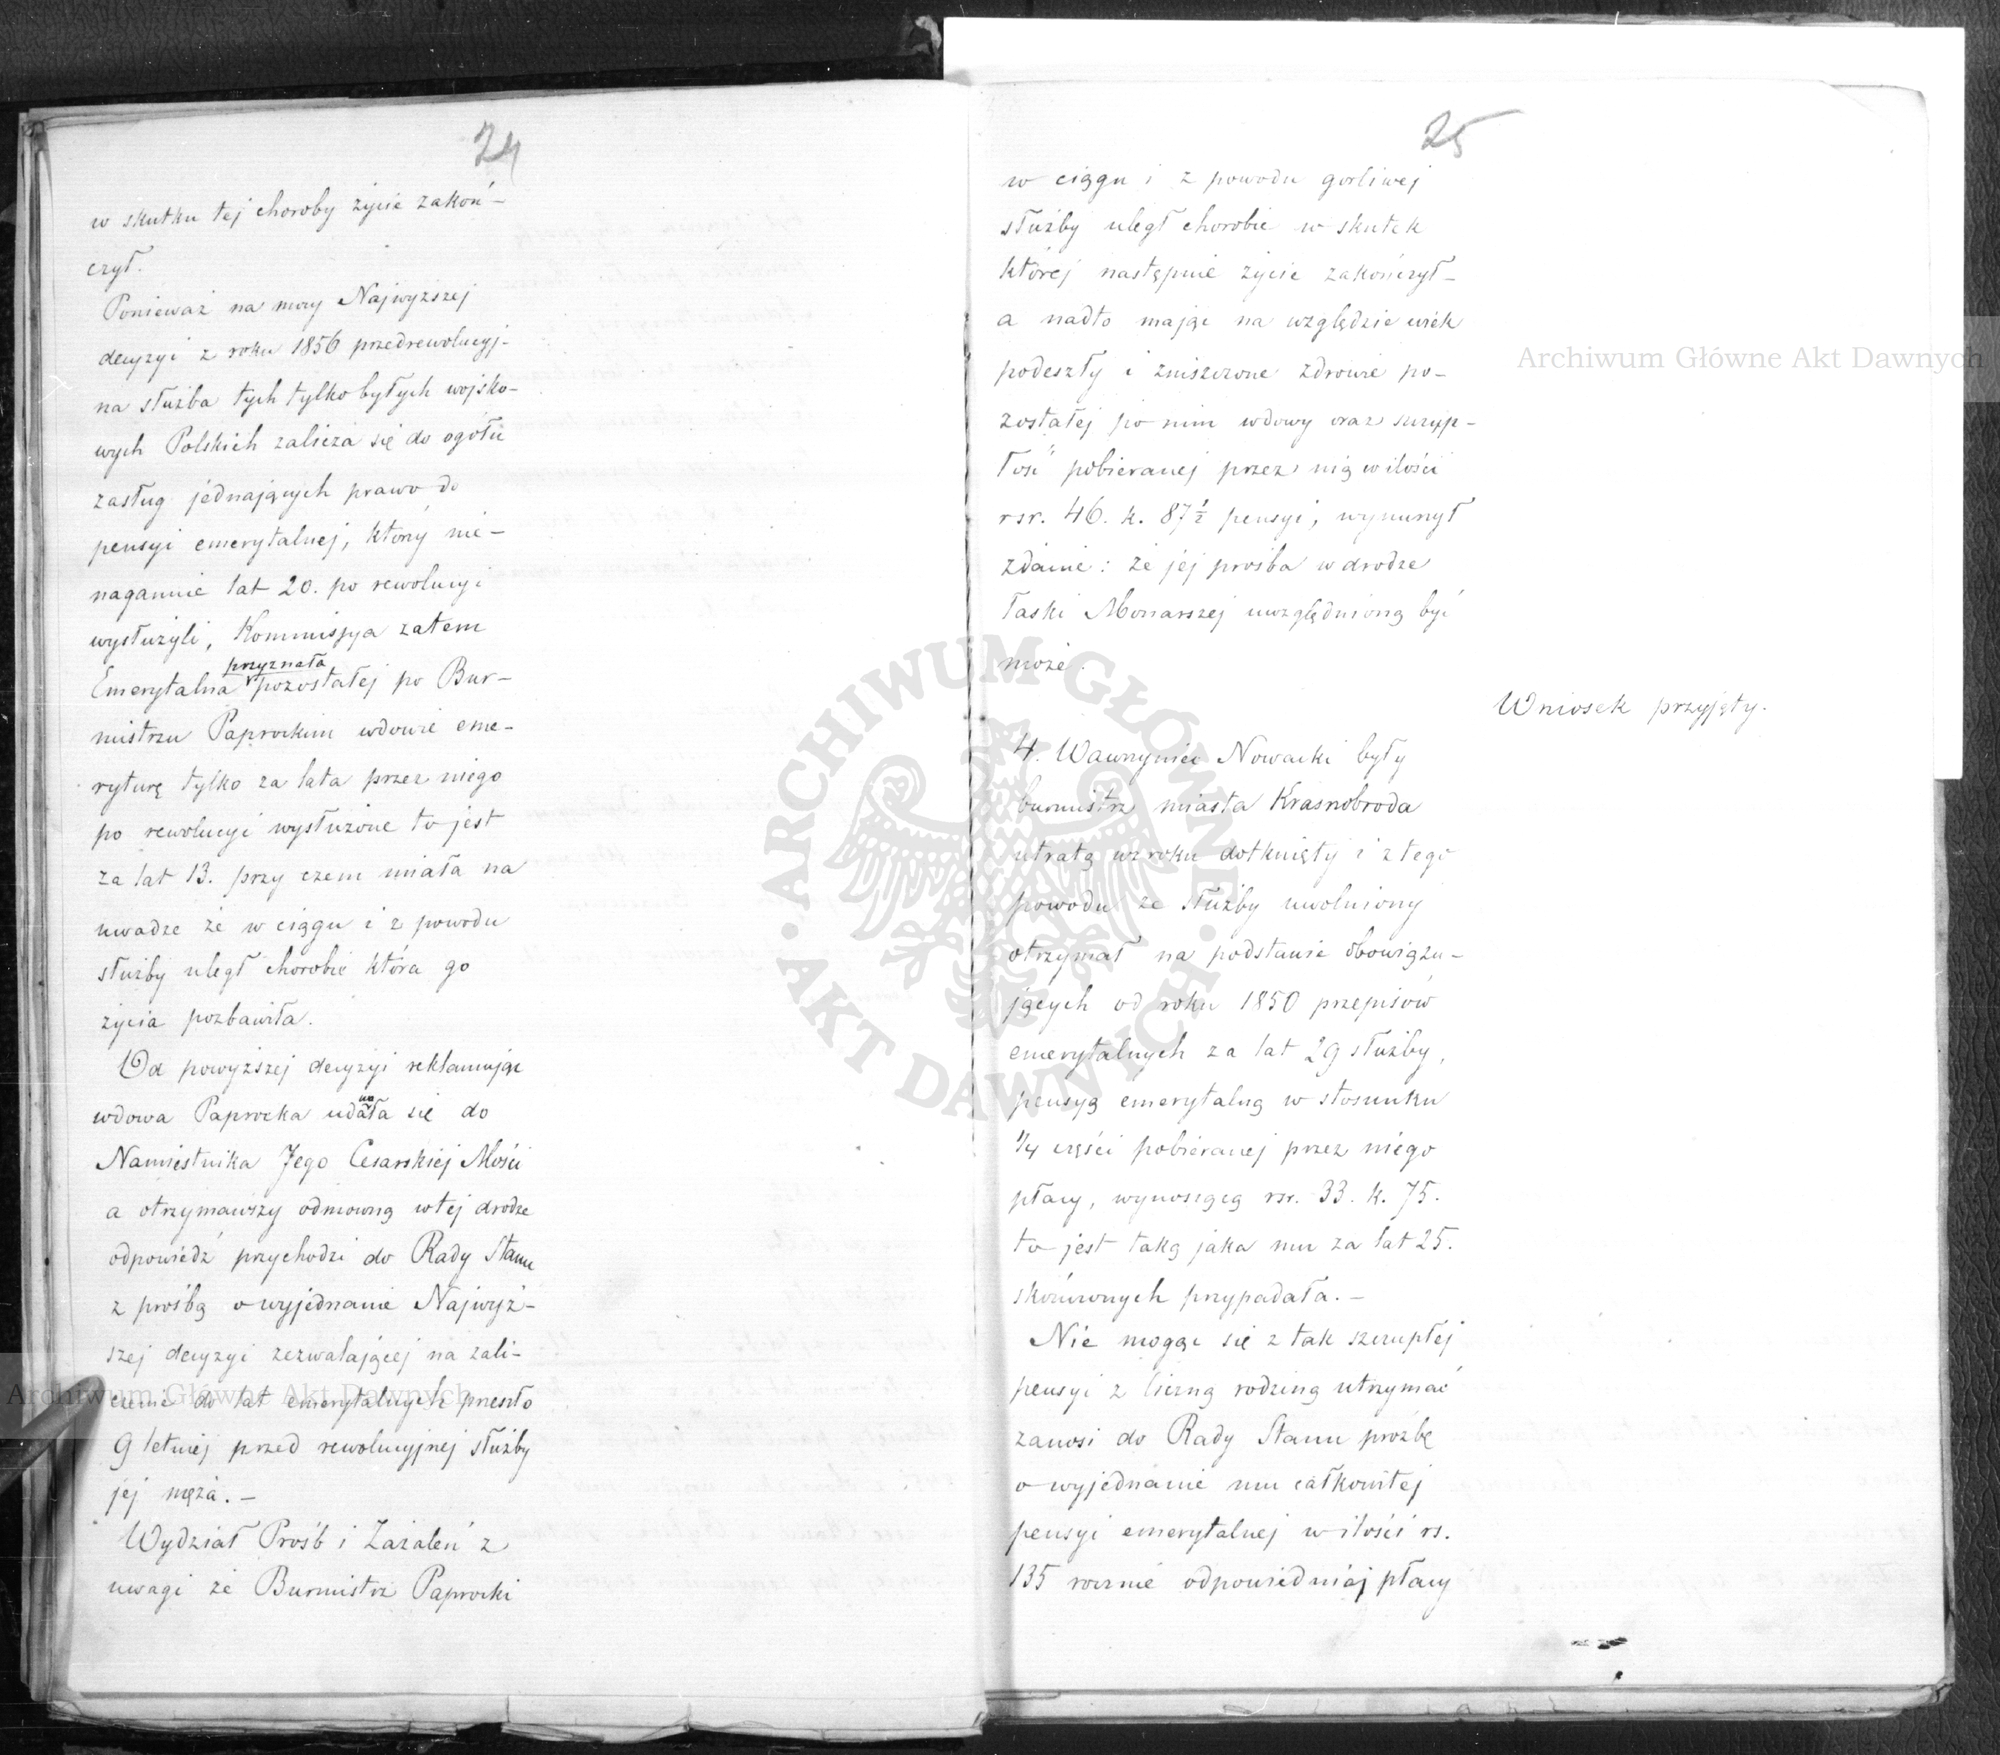 24
w skutku tej choroby życie zakoń-
czył.
Ponieważ na mocy Najwyższej
decyzyi z roku 1856 przedrewolucyj-
na służba tych tylko byłych wojsko-
wych Polskich zalicza się do ogółu
zasług jednających prawo do
pensyi emerytalnej, który nie-
nagannie lat 20. po rewolucyi
wysłużyli, Kommissya zatem
przyznała
Emerytalna pozostałej po Bur-
mistrzu Paprockim wdowie eme-
ryturę tylko za lata przez niego
po rewolucyi wysłużone to jest
za lat 13. przy czem miała na
uwadze że w ciągu i z powodu
służby uległ chorobie która go
życia pozbawiła.
Od powyższej decyzyi reklamując
wdowa Paprocka udała się do
Namiestnika Jego Cesarskiej Mości
a otrzymawszy odmowną w tej drodze
odpowiedź przychodzi do Rady Stanu
z prośbą o wyjednanie Najwyż-
szej decyzyi zezwalającej na zali-
czenie do lat emerytalnych przeszło
9 letniej przed rewolucyjnej służby
jej męża. –
Wydział Prośb i Zażaleń z
uwagi że Burmistrz Paprocki
25
w ciągu i z powodu gorliwej
służby uległ chorobie w skutek
której następnie życie zakończył –
a nadto mając na względzie wiek
podeszły i zniszczone zdrowie po-
zostałej po nim wdowy oraz szczup-
łość pobieranej przez nią w ilości
rsr. 46. k. 87½ pensyi, wynurzył
zdanie: że jej prośba w drodze
łaski Monarszej uwzględnioną być
może.
Wniosek przyjęty.
4. Wawrzyniec Nowacki były
burmistrz miasta Krasnobroda
utratą wzroku dotknięty i z tego
powodu ze służby uwolniony
otrzymał na podstawie obowiązu-
jących od roku 1850 przepisów
emerytalnych za lat 29 służby,
pensyą emerytalną w stosunku
¼ części pobieranej przez niego
płacy, wynoszącą rsr. 33. k. 75.
to jest taką jaka mu za lat 25.
skończonych przypadała. –
Nie mogąc się z tak szczupłej
pensyi z liczną rodziną utrzymać
zanosi do Rady Stanu prośbę
o wyjednanie mu całkowitej
pensyi emerytalnej w ilości rs.
135 rocznie odpowiedniej płacy
Archiwum Główne Akt Dawnych
ARCHIWUM GŁÓWNE AKT DAWNYCH
Archiwum Główne Akt Dawnych